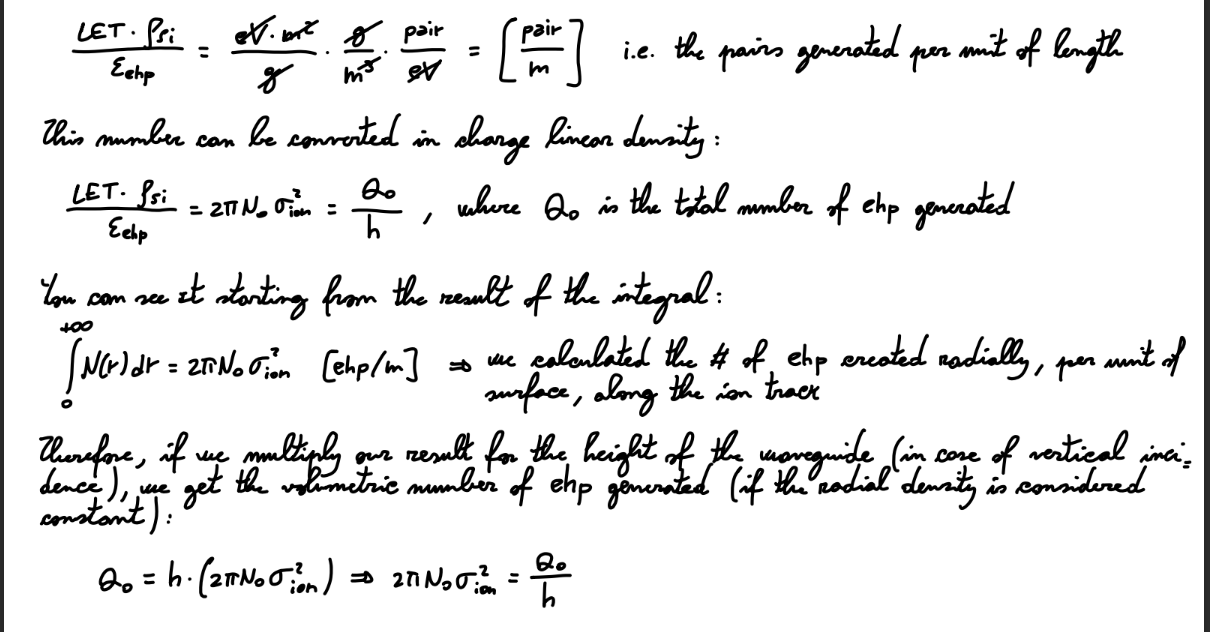 LET · ρsi / Eehp = eV · m² / g · g / m³ · pair / eV = [pair / m] i.e. the pairs generated per unit of length
This number can be converted in charge linear density:
LET · ρsi / Eehp = 2πN₀ σ²ion = Q₀ / h , where Q₀ is the total number of ehp generated
You can see it starting from the result of the integral:
∫₀^{+∞} N(r) dr = 2πN₀ σ²ion [ehp/m] ⇒ we calculated the # of ehp created radially, per unit of
surface, along the ion track
Therefore, if we multiply our result for the height of the waveguide (in case of vertical inci-
dence), we get the volumetric number of ehp generated (if the radial density is considered
constant):
Q₀ = h · (2πN₀ σ²ion) ⇒ 2πN₀ σ²ion = Q₀ / h